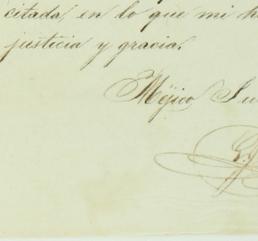 citada, en lo que mi
justicia y gracia.
Méjico